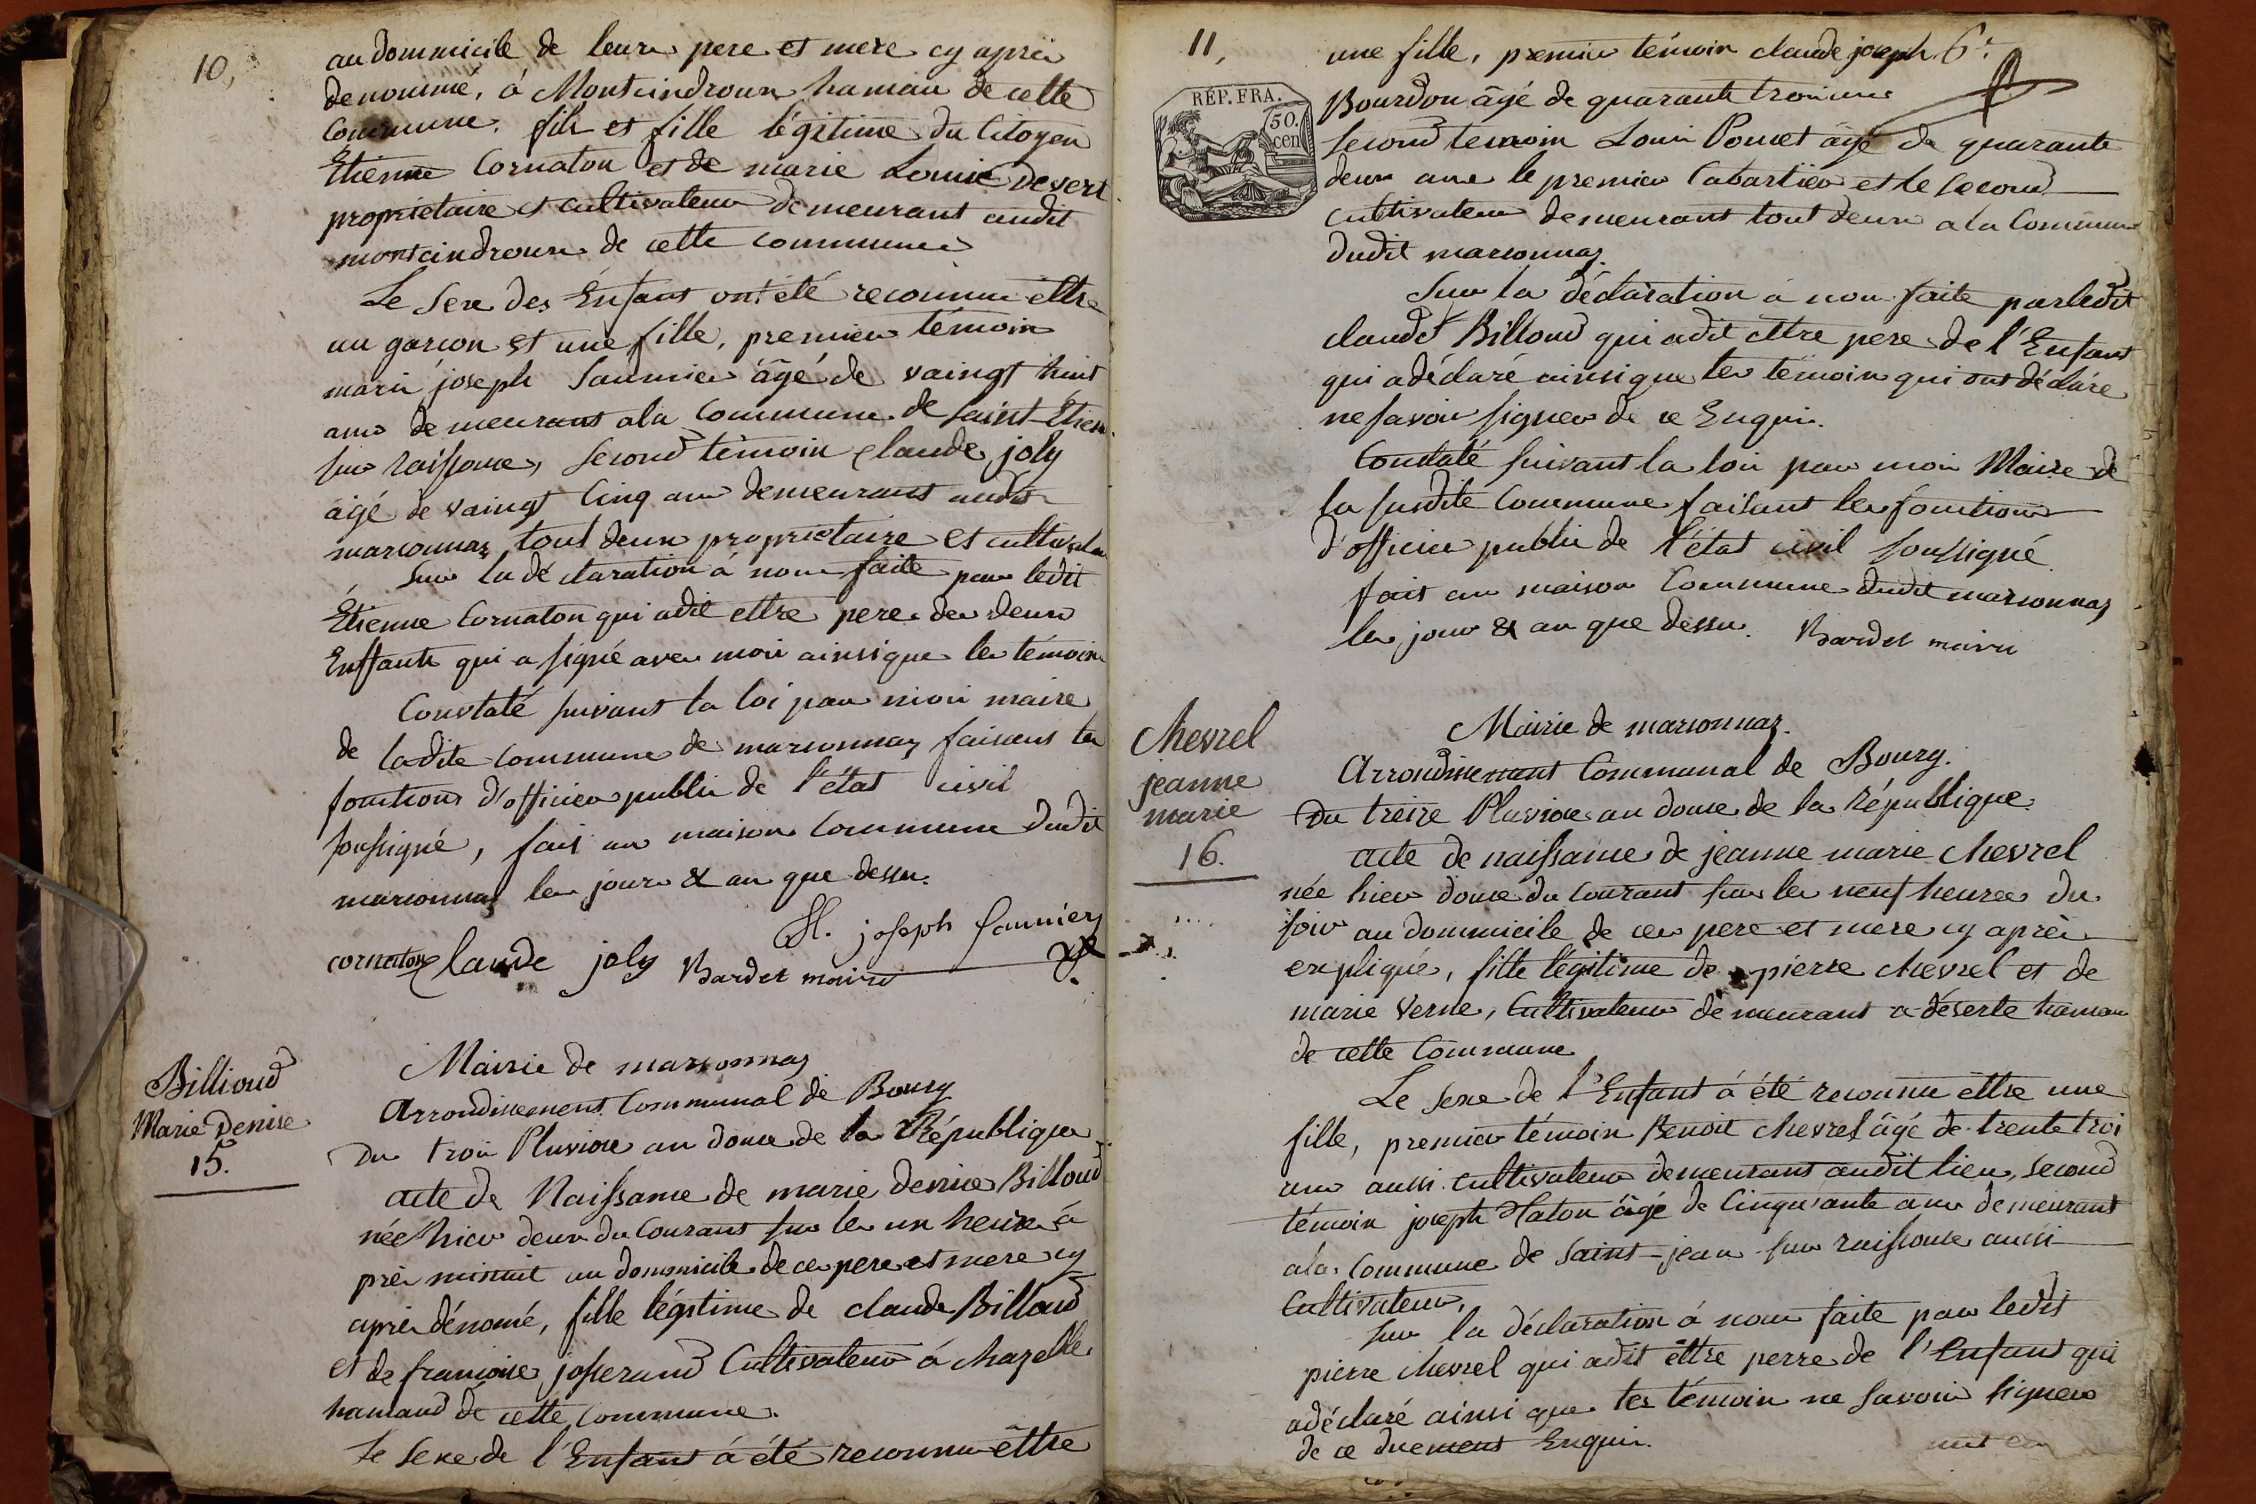 10,
au dommicile de leurs pere et mere cy apres
denommé, á Montcindroux hamau de cette
Commune. fils et fille légitime du Citoyen
Etienne Cornaton et de marie Louise Desert
proprietaire et cultivateur demeurant audit
montcindroux de cette commune
Le Sexe des Énfant ont été reconnu ettre
un garcon et une fille, premier témoin
marie joseph Saunier âgé de vaingt huit
ans demeurant a la Commune de Saint Etien
sur Raissouse, Second témoin Claude joly
âgé de vaingt Cinq ans demeurant audit
marsonnaz tout deux proprietaire et cultivate
Sur la déclaration á nous faite par ledit
Étienne Cornaton qui a dit ettre pere des deux
Enffants qui a signé avec moi ainsi que les témoins
Constaté suivant la loi par moi maire
de ladite commune de marsonnaz faisant les
fonctions d'officier public de l'état civil
soussigné, fait en maison Commune dudit
marsonnaz les jours & an que dessu.
M. joseph Saunier
cornaton Claude joly Bardet maire
Billioud
Marie Denise
15.
Mairie de marsonnaz
Arrondissement Communal de Bourg
Du trois Pluviose an douze de la République
acte de Naissance de marie denise Billoud
née hier deux du Courant sur les un heure á
près minuit au dommicile de ces pere et mere cy
après dénomé, fille légitime de claude Billoud
et de francoise josserand Cultivateur á Chazelle
hamaud de cette commune.
Le Sexe de l'Enfant á été reconnu être
11,
RÉP. FRA.
50.
cen
une fille, premier témoin claude joseph 6e
Bourdon âgé de quarante trois ans
Second temoin Louis Poncet âgé de quarante
deux ans le premier Cabartier et le second
cultivateur demeurant tout deux a la Commune
dudit marsonnaz.
Sur la déclaration á nous faite par ledit
claude Billoud qui a dit ettre pere de l'Enfant
qui a déclaré ainsi que les témoin qui ont déclare
ne savoir signer de ce Enquis.
Constaté suivant la loi par moi Maire de
la susdite Commune faisant les fonctions
d'officier public de l'état civil soussigné.
fait en maison Commune dudit marsonnaz
les jour & an que dessu. Bardet maire
Chevrel
jeanne
marie
16.
Mairie de marsonnaz.
Arrondissement Communal de Bourg.
Du treize Pluviose an douze de la République
acte de naissance de jeanne marie Chevrel
née hier douze du Courant sur les neuf heures du
soir au dommicile de ces pere et mere cy après
expliqué, fille légitime de pierre chevrel et de
marie Verne, Cultivateur demeurant a deserte hamau
de cette Commune
Le Sexe de l'Enfant á été reconnu ettre une
fille, premier témoin Benoit Chevrel âgé de trente troi
ans aussi cultivateur demeurant audit lieu, Second
témoin joseph Platon âgé de Cinquante ans demeurant
a la Commune de Saint-jean sur raissouse aussi
Cultivateur.
Sur la déclaration á nous faite par ledit
pierre Chevrel qui a dit ettre perre de l'Enfant qui
a déclaré ainsi que les témoin ne Savoir signer
de ce duement Enquis.